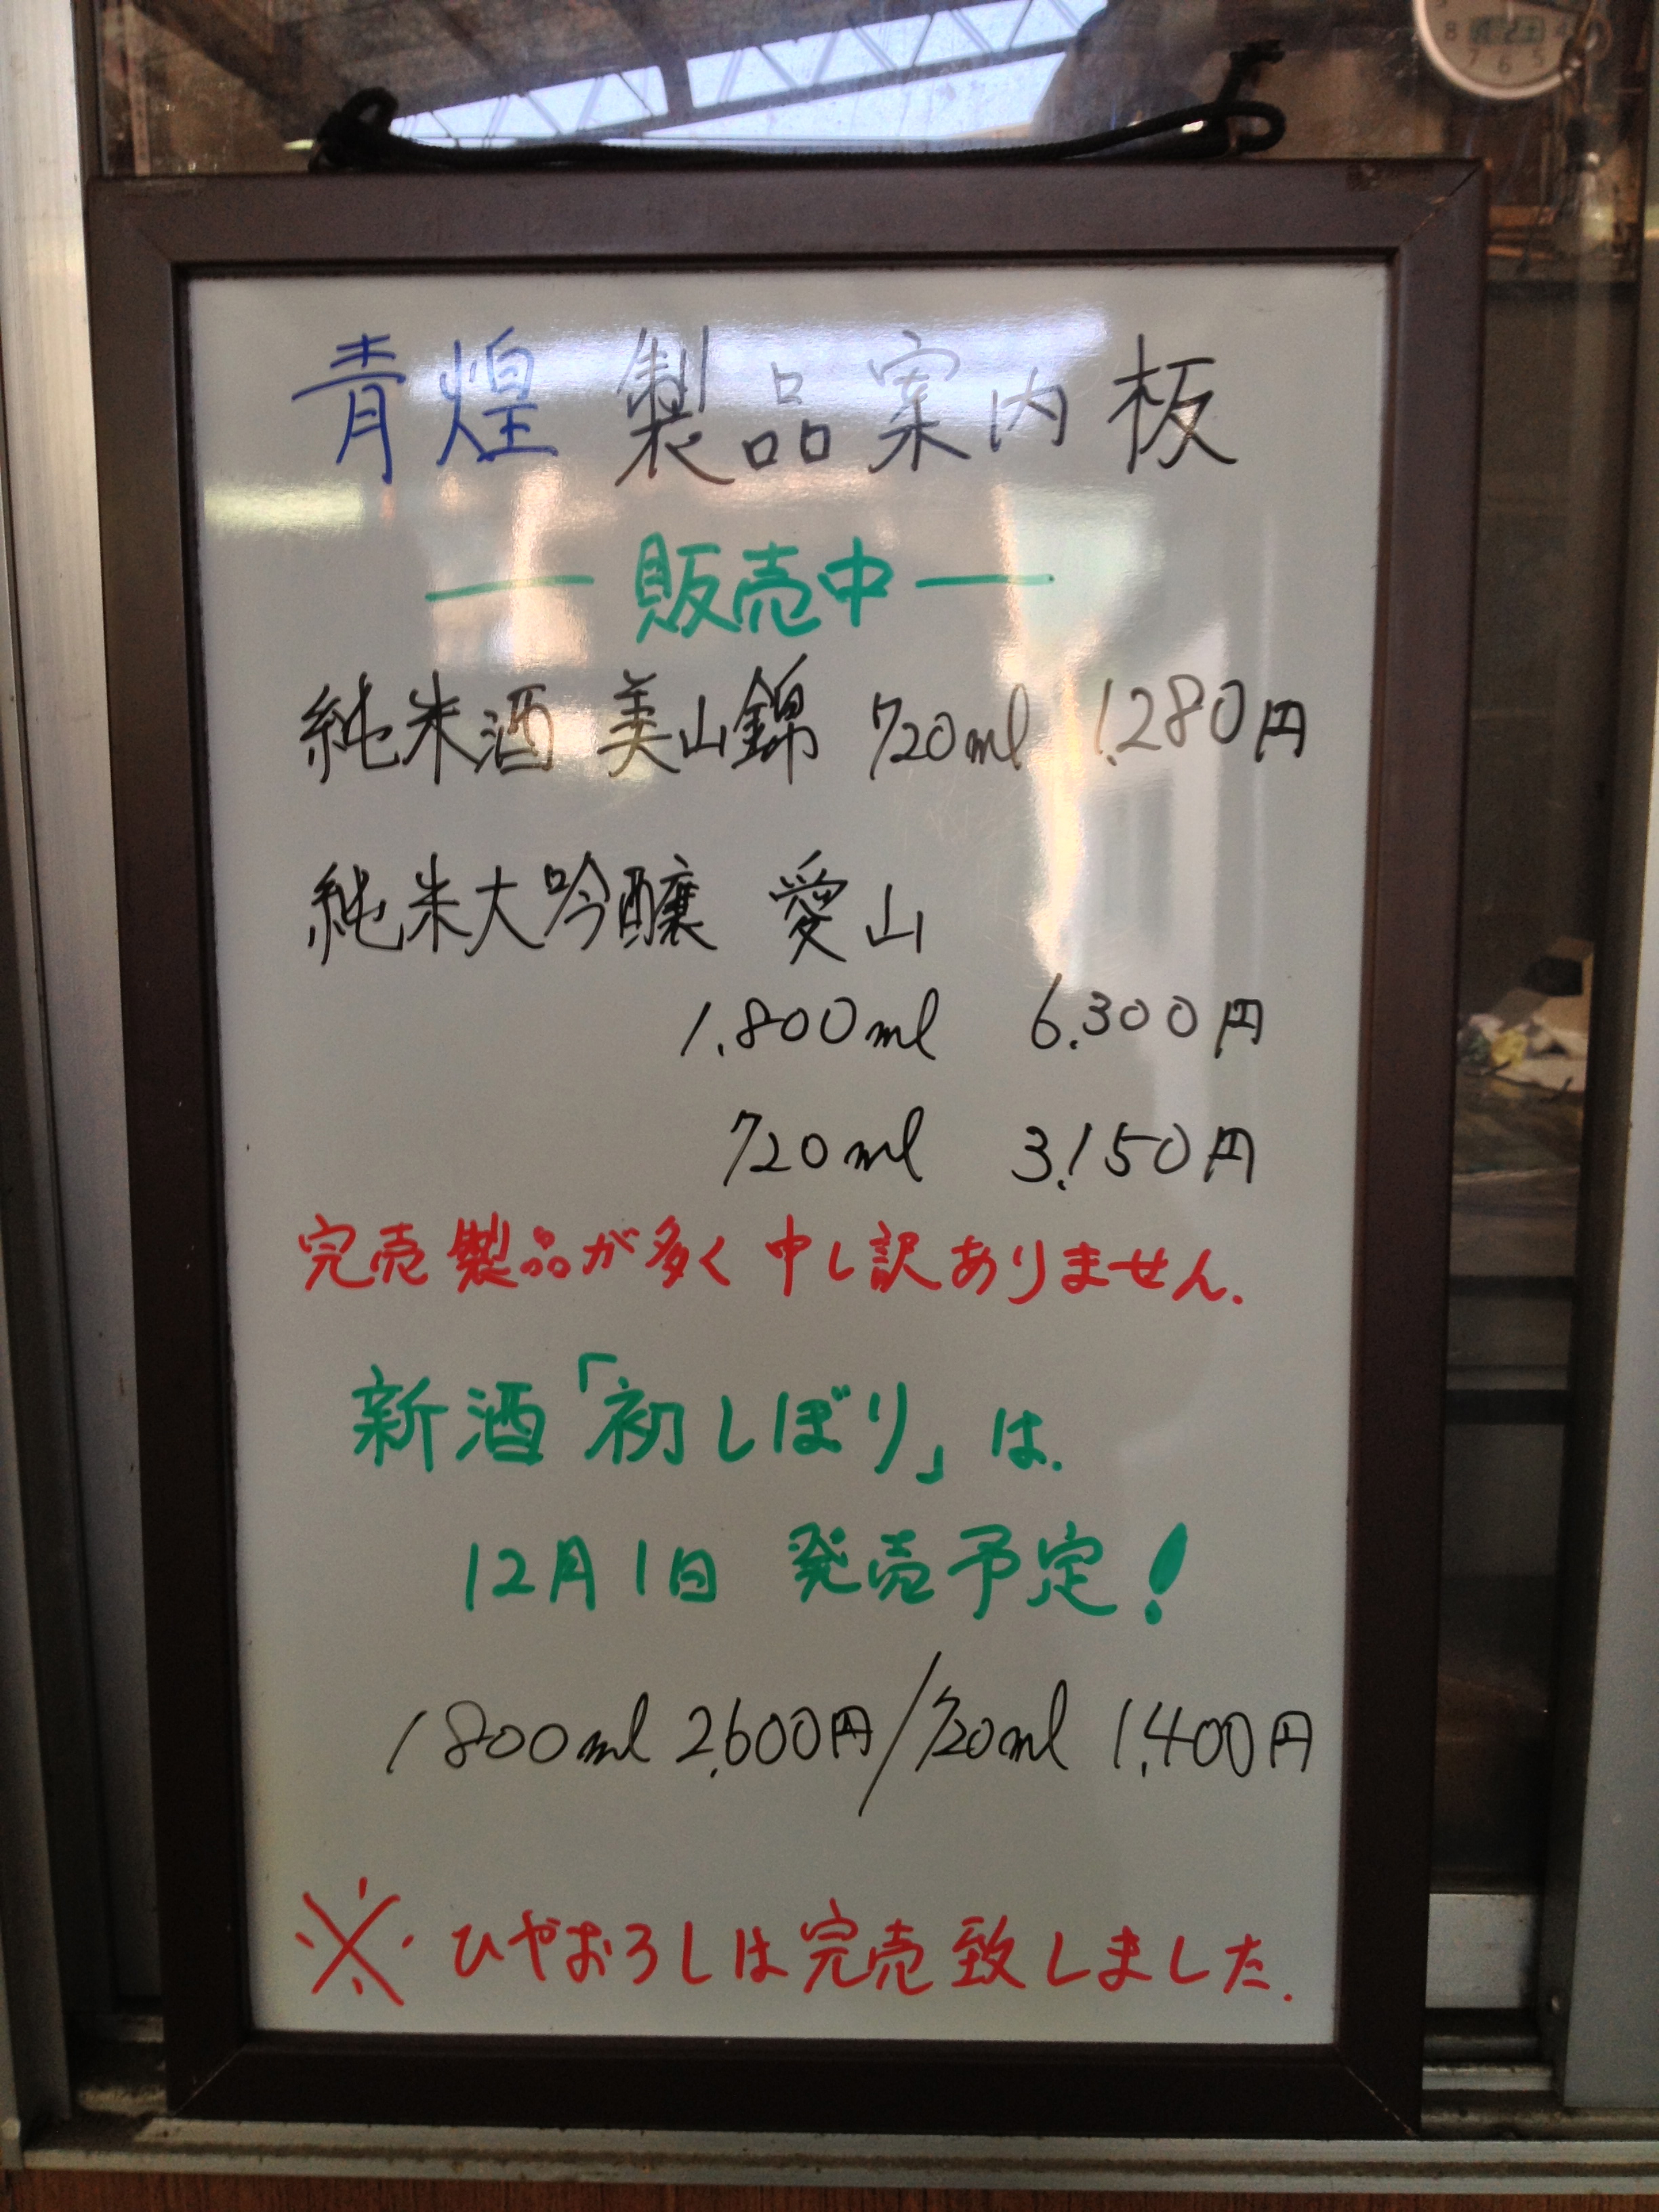 青煌 製品案内板
― 販売中 ―
純米酒 美山錦 720ml 1.280円
純米大吟醸 愛山
1.800ml 6.300円
720ml 3.150円
完売製品が多く申し訳ありません.
新酒「初しぼり」は.
12月1日 発売予定!
1800ml 2.600円/720ml 1.400円
※ひやおろしは完売致しました.